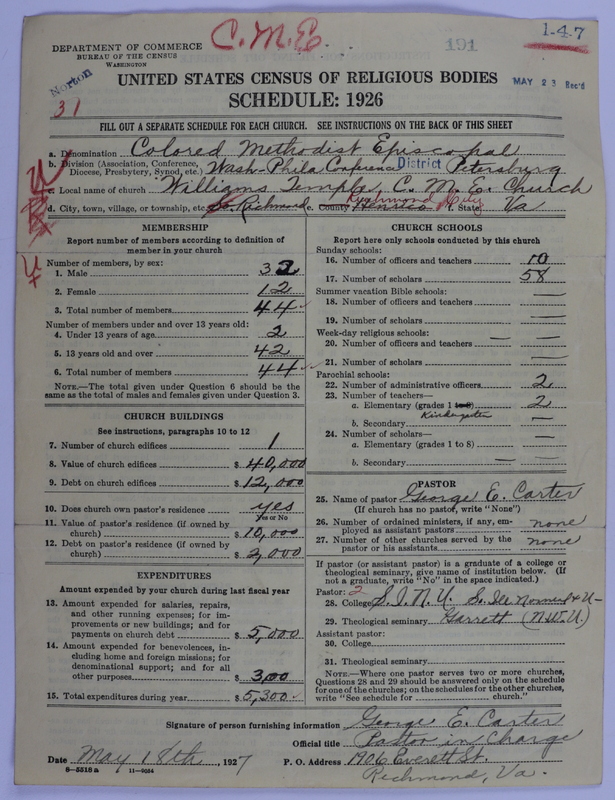 C.M.E.
191
1-4-7
DEPARTMENT OF COMMERCE
BUREAU OF THE CENSUS
WASHINGTON
Norton
31
MAY 23 Rec'd
UNITED STATES CENSUS OF RELIGIOUS BODIES
SCHEDULE: 1926
FILL OUT A SEPARATE SCHEDULE FOR EACH CHURCH. SEE INSTRUCTIONS ON THE BACK OF THIS SHEET
a. Denomination Colored Methodist Episcopal
b. Division (Association, Conference, Diocese, Presbytery, Synod, etc.) Wash-Phila Conference District Petersburg
c. Local name of church Williams Temple, C. M. E. Church
d. City, town, village, or township, etc. So. Richmond e. County Henrico Richmond City f. State Va
MEMBERSHIP
Report number of members according to definition of
member in your church
Number of members, by sex:
1. Male 32
2. Female 12
3. Total number of members 44
Number of members under and over 13 years old:
4. Under 13 years of age 2
5. 13 years old and over 42
6. Total number of members 44
NOTE.—The total given under Question 6 should be the
same as the total of males and females given under Question 3.
CHURCH BUILDINGS
See instructions, paragraphs 10 to 12
7. Number of church edifices 1
8. Value of church edifices $ 40,000
9. Debt on church edifices $ 12,000
10. Does church own pastor's residence yes
Yes or No
11. Value of pastor's residence (if owned by
church) $ 10,000
12. Debt on pastor's residence (if owned by
church) $ 2,000
EXPENDITURES
Amount expended by your church during last fiscal year
13. Amount expended for salaries, repairs,
and other running expenses; for im-
provements or new buildings; and for
payments on church debt $ 5,000
14. Amount expended for benevolences, in-
cluding home and foreign missions; for
denominational support; and for all
other purposes $ 300
15. Total expenditures during year $ 5,300
CHURCH SCHOOLS
Report here only schools conducted by this church
Sunday schools:
16. Number of officers and teachers 10
17. Number of scholars 58
Summer vacation Bible schools:
18. Number of officers and teachers —
19. Number of scholars —
Week-day religious schools:
20. Number of officers and teachers — —
21. Number of scholars —
Parochial schools:
22. Number of administrative officers 2
23. Number of teachers—
a. Elementary (grades 1 to 8) 2
Kindergarten
b. Secondary —
24. Number of scholars—
a. Elementary (grades 1 to 8) —
b. Secondary — —
PASTOR
25. Name of pastor George E. Carter
(If church has no pastor, write "None")
26. Number of ordained ministers, if any, em-
ployed as assistant pastors none
27. Number of other churches served by the
pastor or his assistants none
If pastor (or assistant pastor) is a graduate of a college or
theological seminary, give name of institution below. (If
not a graduate, write "No" in the space indicated.)
Pastor: 2
28. College S. I. N. U. So. Ill Normal U-
29. Theological seminary Garrett (N.W.U.)
Assistant pastor:
30. College
31. Theological seminary
NOTE.—Where one pastor serves two or more churches,
Questions 28 and 29 should be answered only on the schedule
for one of the churches; on the schedules for the other churches,
write "See schedule for church."
Signature of person furnishing information George E. Carter
Official title Pastor in Charge
Date May 18th, 1927 P. O. Address 1906 Everett St.
8—5518a 11—9034
Richmond, Va.